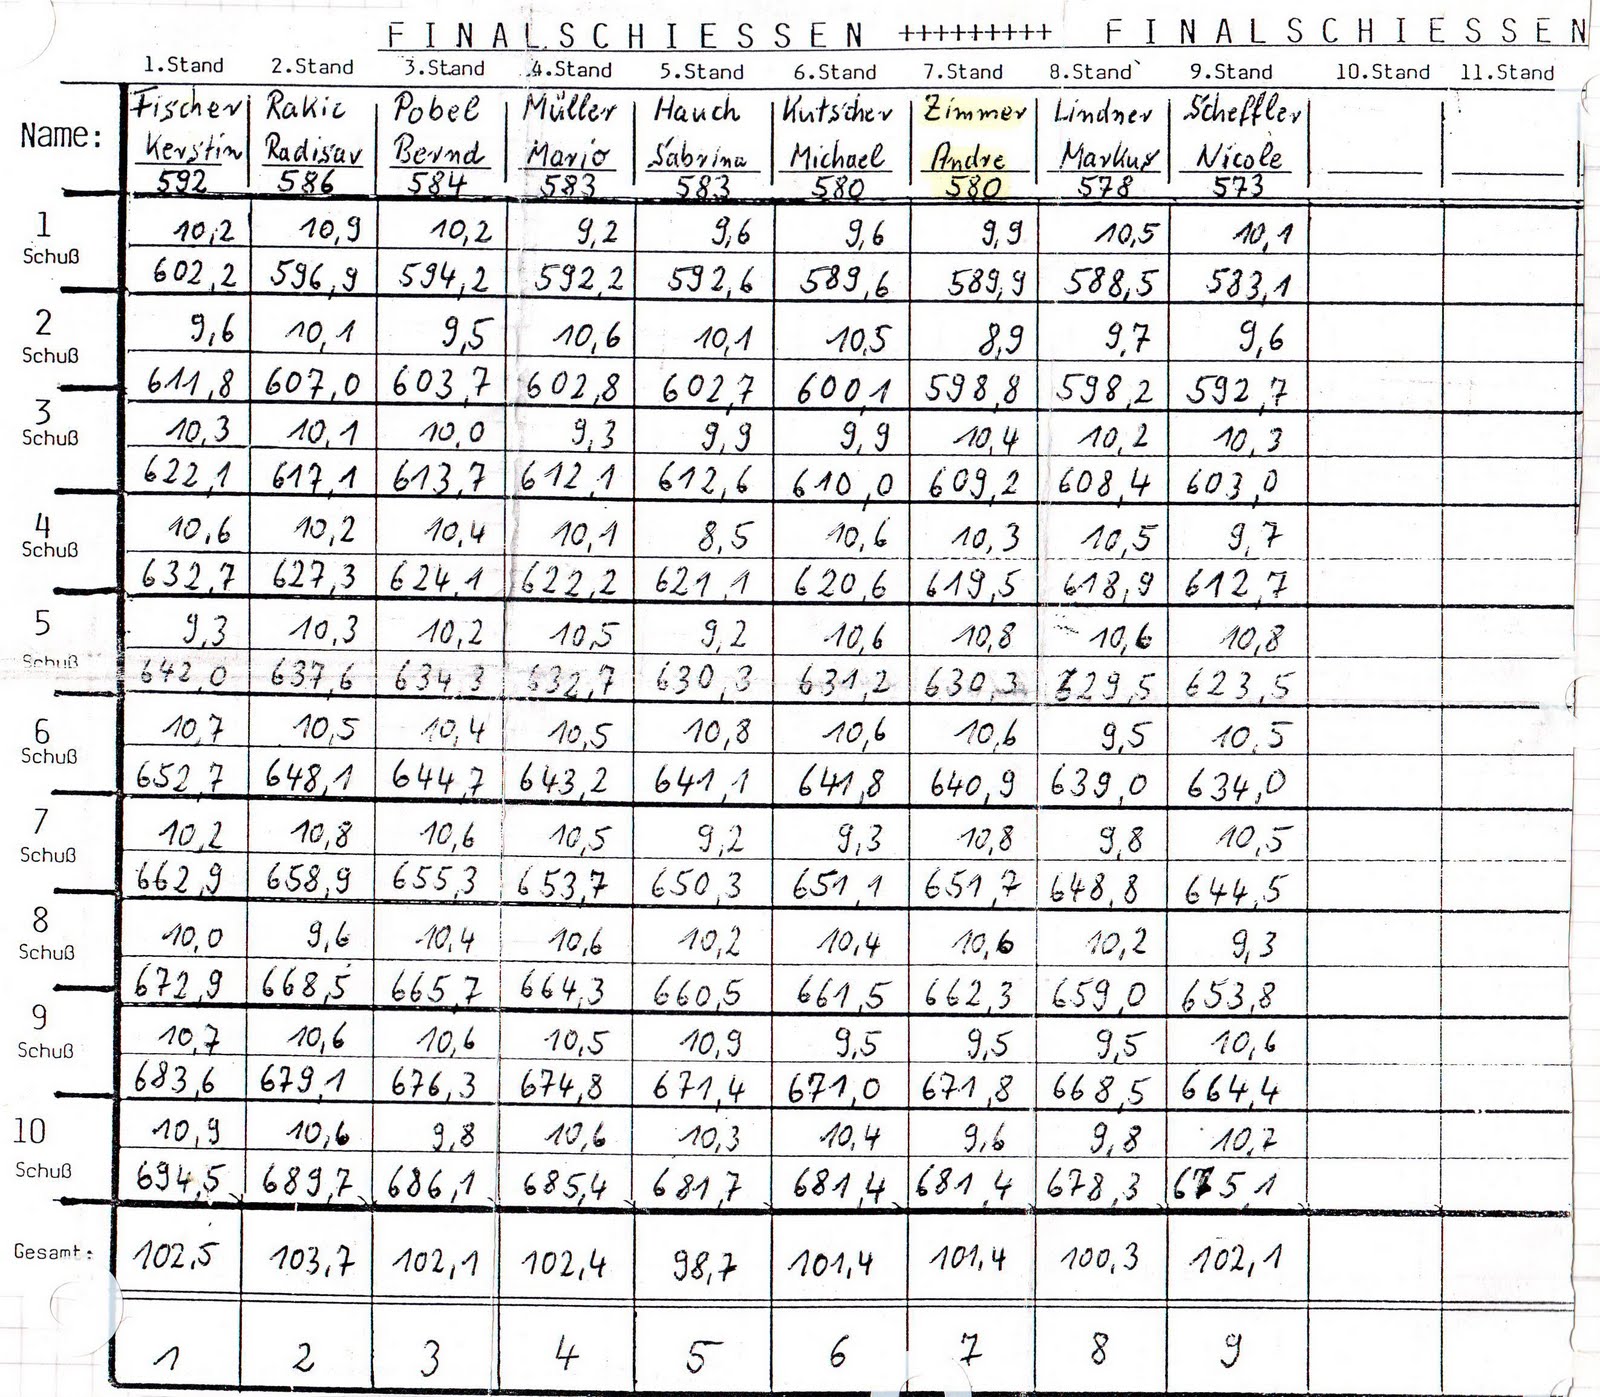 FINALSCHIESSEN +++++++++ FINALSCHIESSEN
1.Stand 2.Stand 3.Stand 4.Stand 5.Stand 6.Stand 7.Stand 8.Stand 9.Stand 10.Stand 11.Stand
Fischer Rakic Pobel Müller Hauch Kutscher Zimmer Lindner Scheffler
Name: Kerstin Radisav Bernd Mario Sabrina Michael Andre Markus Nicole
592 586 584 583 583 580 580 578 573
1 10,2 10,9 10,2 9,2 9,6 9,6 9,9 10,5 10,1
Schuß 602,2 596,9 594,2 592,2 592,6 589,6 589,9 588,5 583,1
2 9,6 10,1 9,5 10,6 10,1 10,5 8,9 9,7 9,6
Schuß 611,8 607,0 603,7 602,8 602,7 600,1 598,8 598,2 592,7
3 10,3 10,1 10,0 9,3 9,9 9,9 10,4 10,2 10,3
Schuß 622,1 617,1 613,7 612,1 612,6 610,0 609,2 608,4 603,0
4 10,6 10,2 10,4 10,1 8,5 10,6 10,3 10,5 9,7
Schuß 632,7 627,3 624,1 622,2 621,1 620,6 619,5 618,9 612,7
5 9,3 10,3 10,2 10,5 9,2 10,6 10,8 10,6 10,8
Schuß 642,0 637,6 634,3 632,7 630,3 631,2 630,3 629,5 623,5
6 10,7 10,5 10,4 10,5 10,8 10,6 10,6 9,5 10,5
Schuß 652,7 648,1 644,7 643,2 641,1 641,8 640,9 639,0 634,0
7 10,2 10,8 10,6 10,5 9,2 9,3 10,8 9,8 10,5
Schuß 662,9 658,9 655,3 653,7 650,3 651,1 651,7 648,8 644,5
8 10,0 9,6 10,4 10,6 10,2 10,4 10,6 10,2 9,3
Schuß 672,9 668,5 665,7 664,3 660,5 661,5 662,3 659,0 653,8
9 10,7 10,6 10,6 10,5 10,9 9,5 9,5 9,5 10,6
Schuß 683,6 679,1 676,3 674,8 671,4 671,0 671,8 668,5 664,4
10 10,9 10,6 9,8 10,6 10,3 10,4 9,6 9,8 10,7
Schuß 694,5 689,7 686,1 685,4 681,7 681,4 681,4 678,3 675,1
Gesamt: 102,5 103,7 102,1 102,4 98,7 101,4 101,4 100,3 102,1
1 2 3 4 5 6 7 8 9